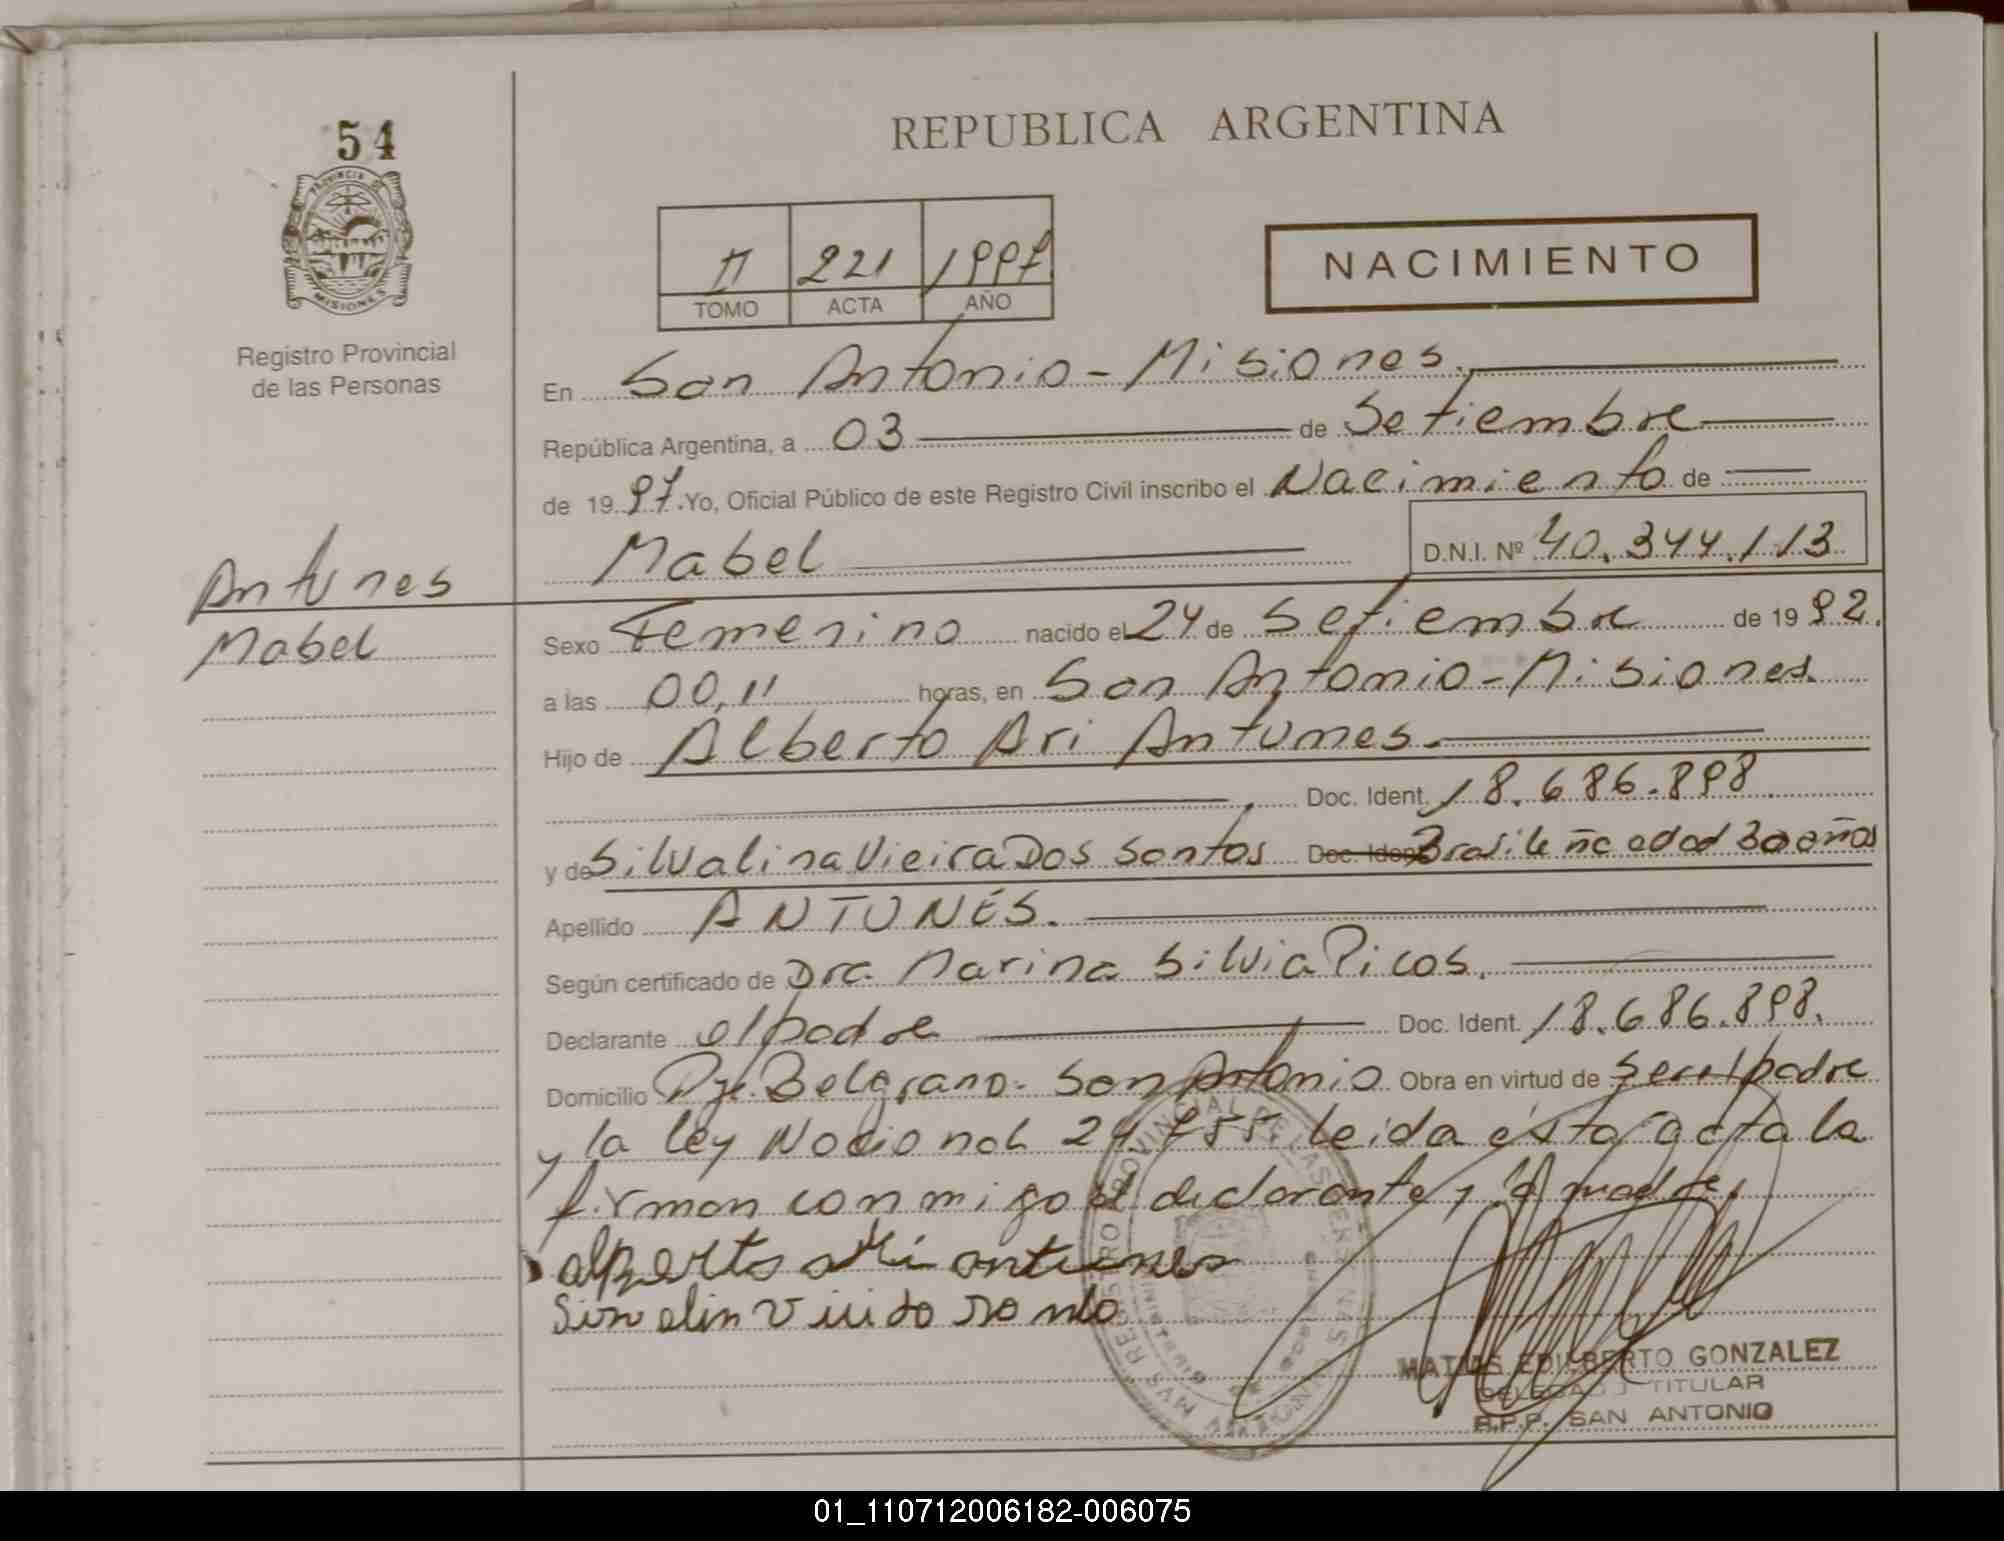 54
PROVINCIA DE MISIONES
Registro Provincial
de las Personas
Antunes
Mabel
REPUBLICA ARGENTINA
II 221 1997
TOMO ACTA AÑO
NACIMIENTO
En San Antonio - Misiones.
República Argentina, a 03 de Setiembre
de 1997. Yo, Oficial Público de este Registro Civil inscribo el Nacimiento de
Mabel D.N.I. Nº 40.344.113
Sexo Femenino nacido el 24 de Setiembre de 1992.
a las 00,11 horas, en San Antonio - Misiones.
Hijo de Alberto Ari Antunes.
Doc. Ident. 18.686.898
y de Silvalina Vieira Dos Santos Doc. Ident. Brasileña edad 30 años
Apellido ANTUNES.
Según certificado de Dra Marina Silvia Picos.
Declarante el padre Doc. Ident. 18.686.898.
Domicilio Pje. Belgrano - San Antonio Obra en virtud de ser el padre
y la ley Nacional 24.755. leida ésta acta la
firman conmigo el declarante y la madre,
alberto ari antunes
REGISTRO PROVINCIAL DE LAS PERSONAS
SAN ANTONIO
MATIAS EDILBERTO GONZALEZ
DELEGADO TITULAR
R.P.P. SAN ANTONIO
01_110712006182-006075